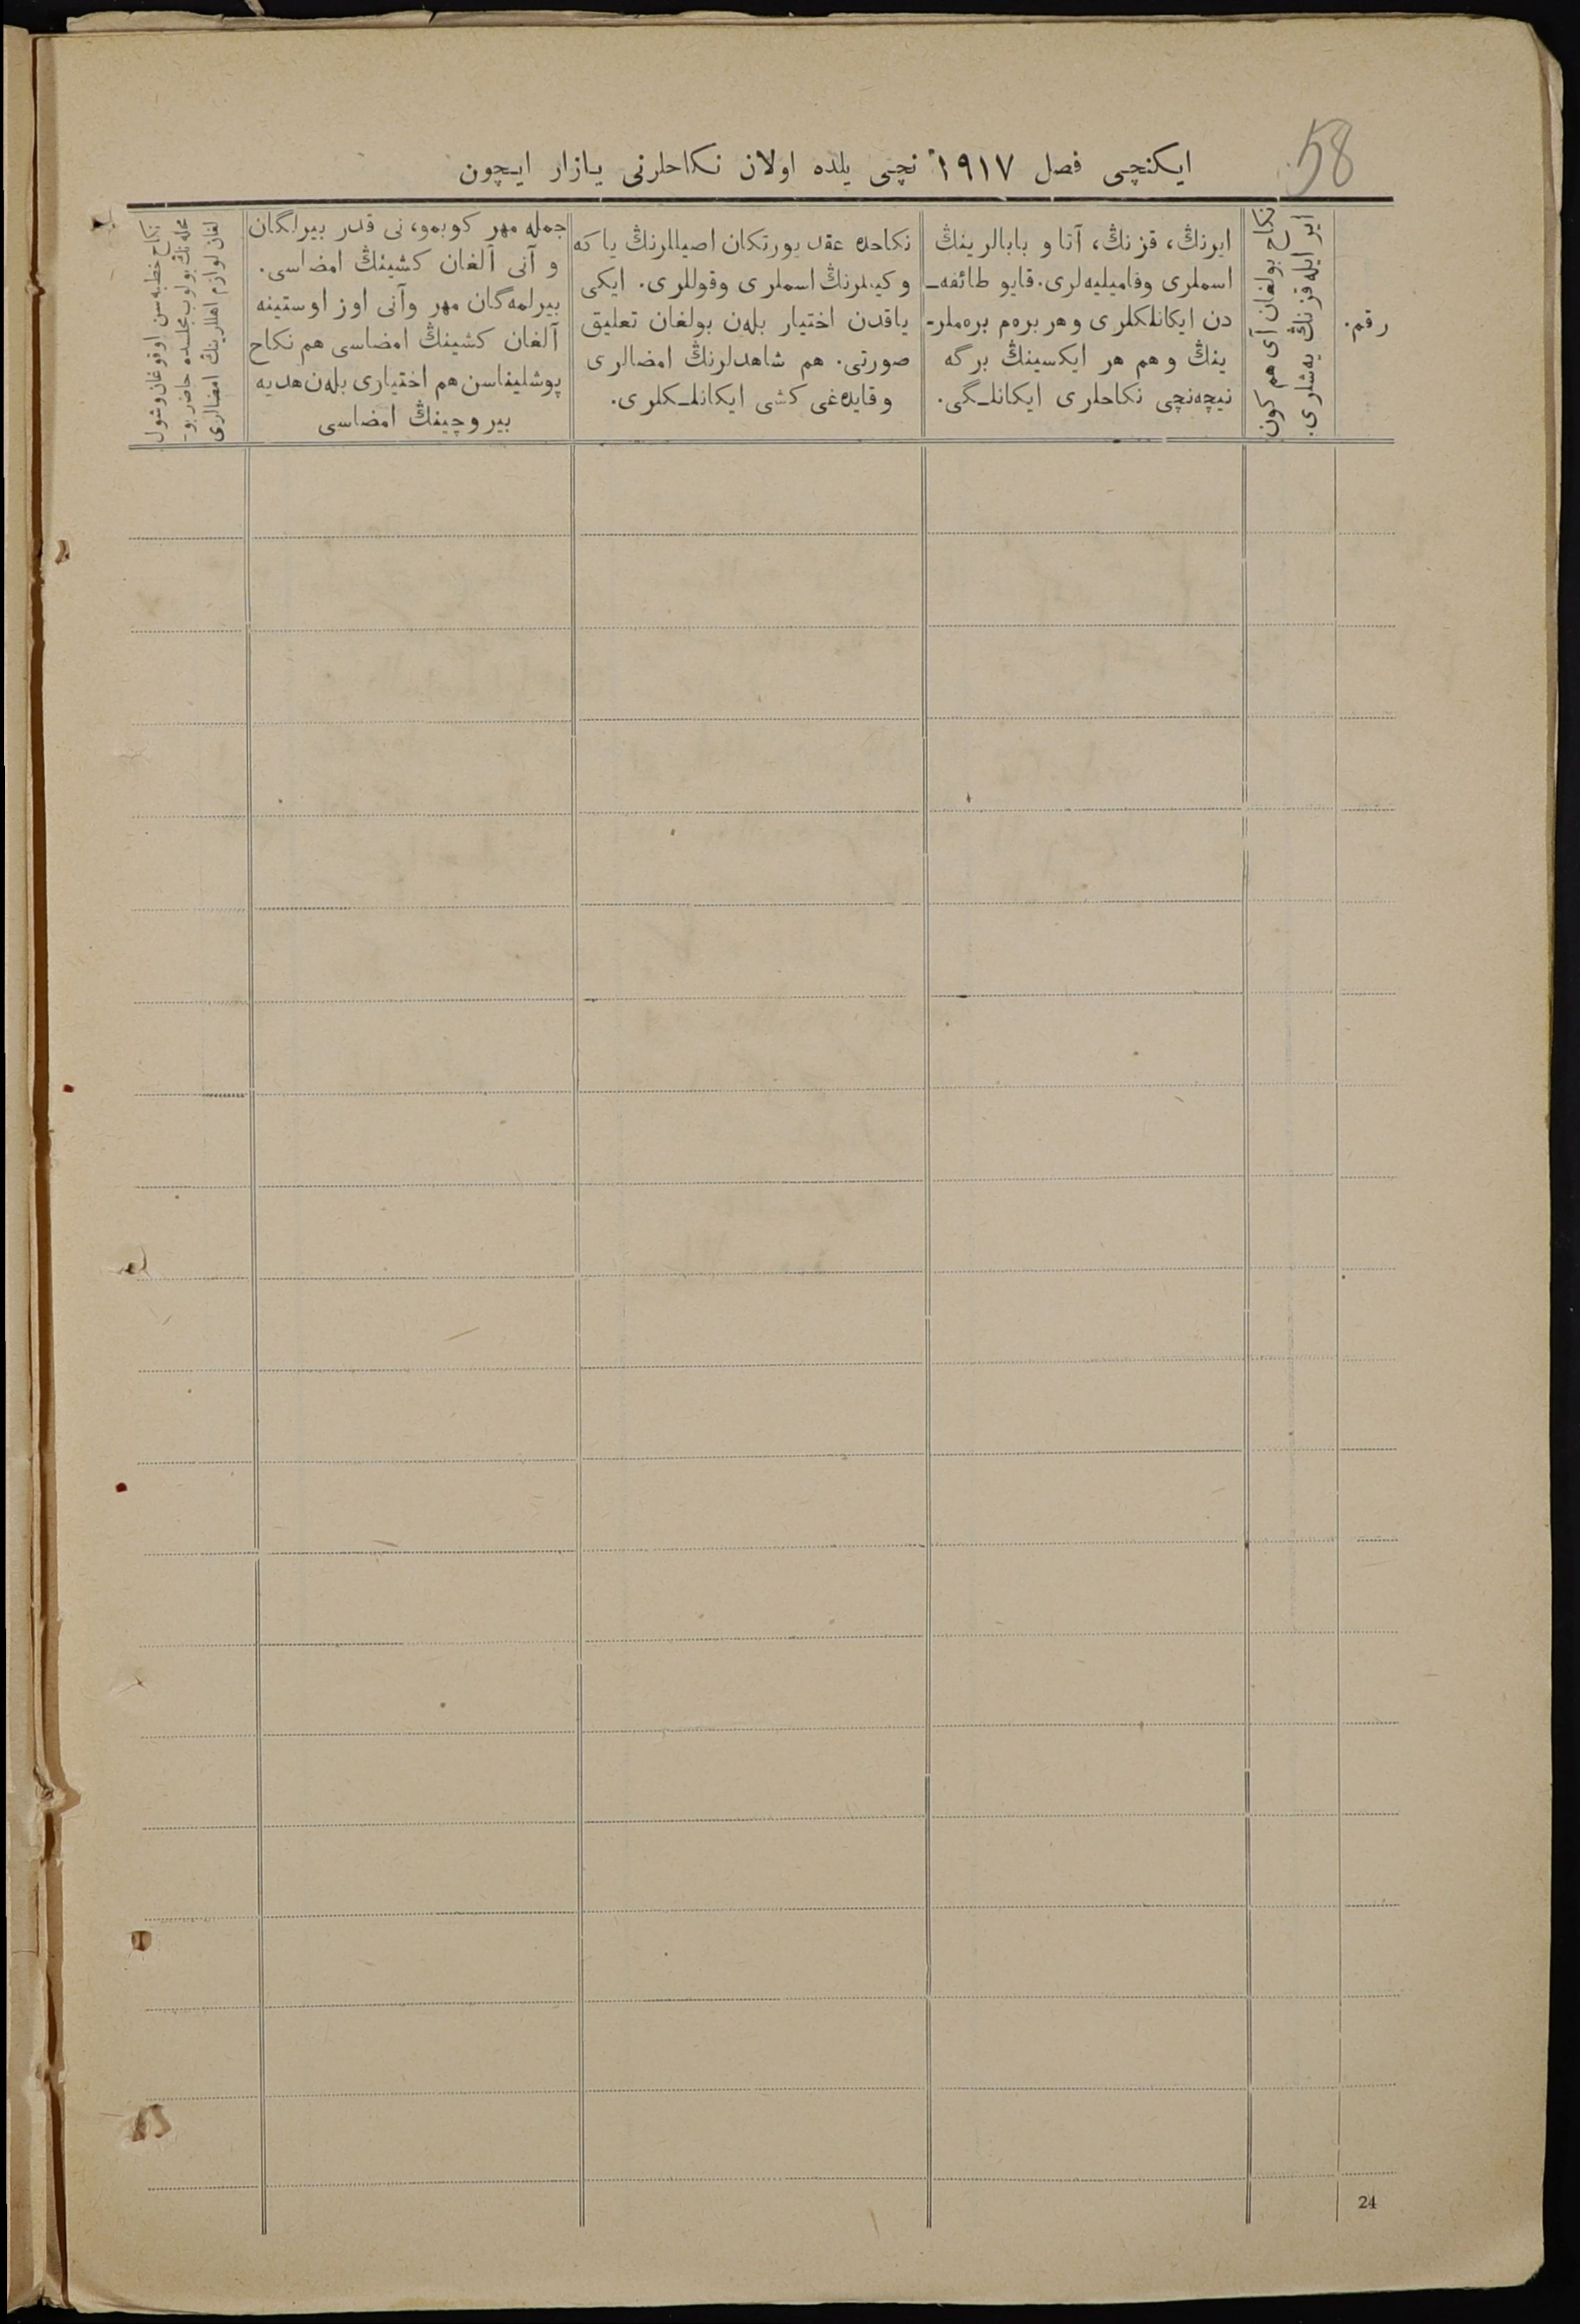 58
ایکنچی فصل ١٩١٧ نچی یلده اولان نکاحلرنی یازار ایچون
رقم.
نکاح بولغان آی هم کون
ایر ایله قزنڭ یه‌شلری.
ایرنڭ، قزنڭ، آتا و بابالرینڭ
اسملری وفامیلیه‌لری. قایو طائفه‌ـ
دن ایکانلکلری وهر بره‌م بره‌ملر-
ینڭ وهم هر ایکسینڭ برگه
نیچه‌نچی نکاحلری ایکانلـگی.
نکاحده عقد یورتکان اصیللرنڭ یا که
وکیللرنڭ اسملری وقوللری. ایکی
یاقدن اختیار بله‌ن بولغان تعلیق
صورتی. هم شاهدلرنڭ امضالری
وقایده‌غی کشی ایکانلـکلری.
جمله مهر کوبمو، نی قدر بیرلگان
و آنی آلغان کشینڭ امضاسی.
بیرلمه‌گان مهر وآنی اوز اوستینه
آلغان کشینڭ امضاسی هم نکاح
پوشلیناسن هم اختیاری بله‌ن هدیه
بیروچینڭ امضاسی
نکاح خطبه‌سن اوقوغان وشول
محله‌نڭ بولوب مجلسده حاضر بو-
لغان لوازم اهللرینڭ امضالری
24